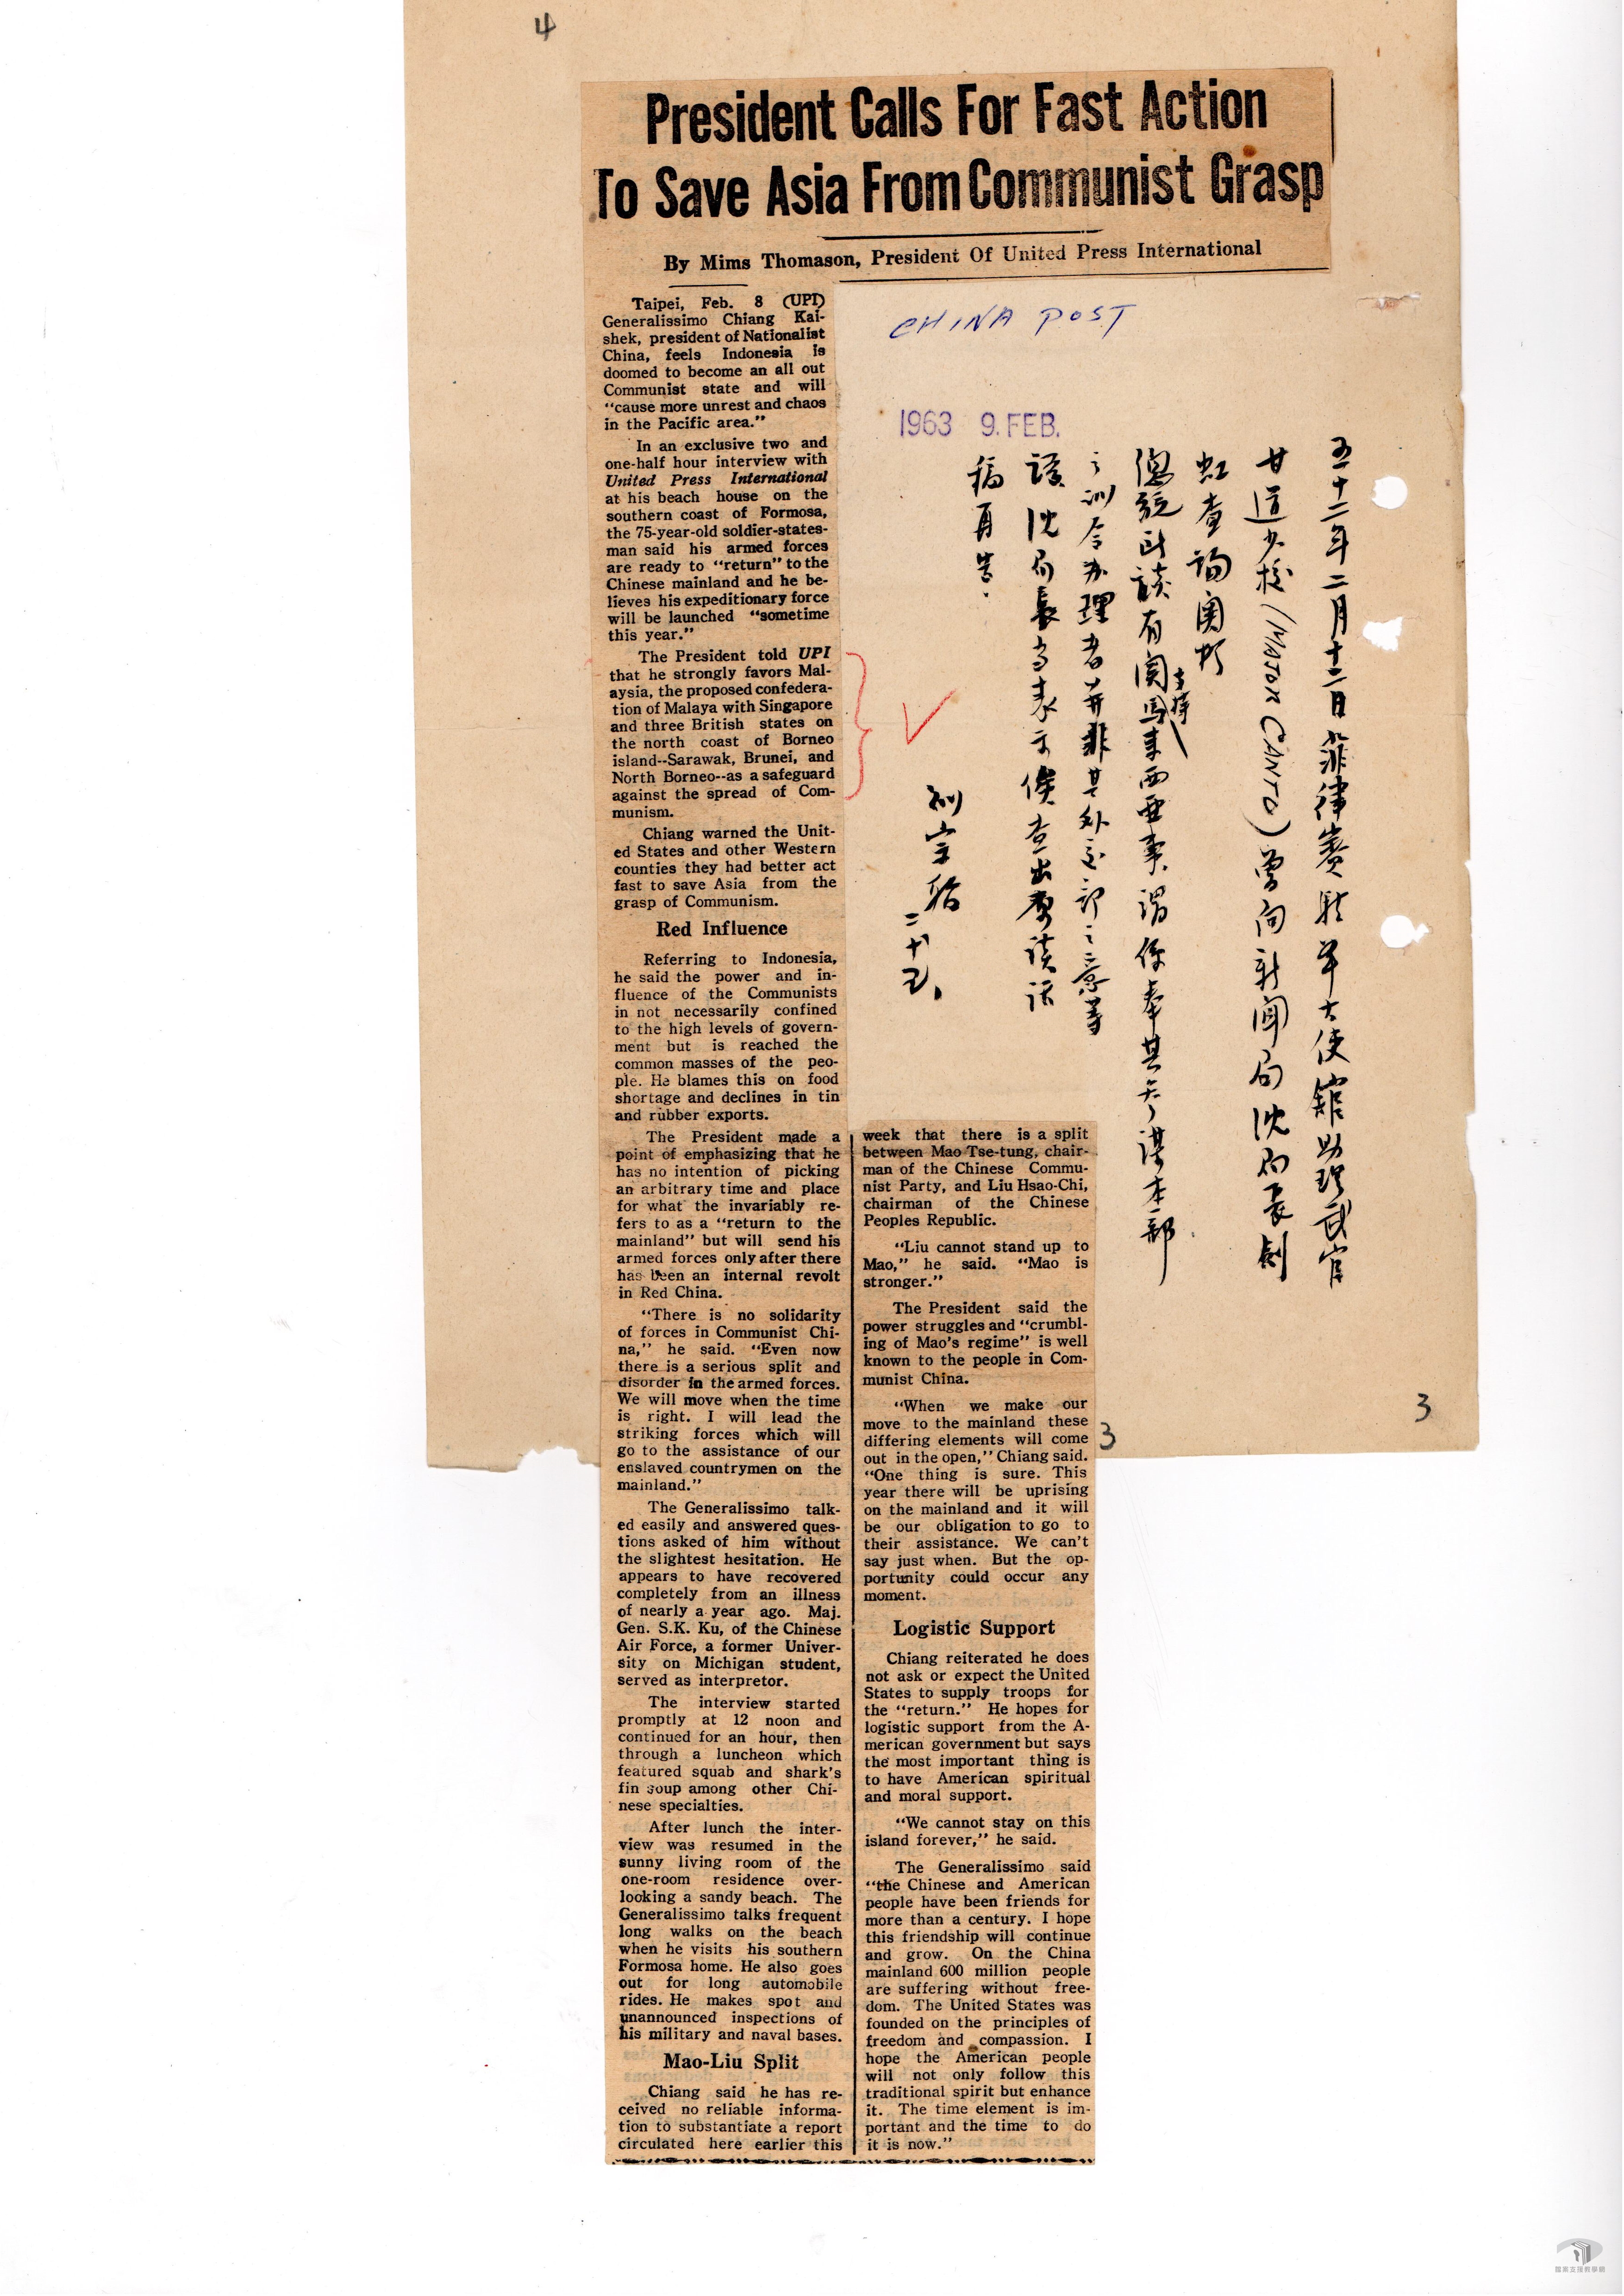 4
President Calls For Fast Action
To Save Asia From Communist Grasp
By Mims Thomason, President Of United Press International
Taipei, Feb. 8 (UPI)
Generalissimo Chiang Kai-
shek, president of Nationalist
China, feels Indonesia is
doomed to become an all out
Communist state and will
"cause more unrest and chaos
in the Pacific area."
In an exclusive two and
one-half hour interview with
United Press International
at his beach house on the
southern coast of Formosa,
the 75-year-old soldier-states-
man said his armed forces
are ready to "return" to the
Chinese mainland and he be-
lieves his expeditionary force
will be launched "sometime
this year."
The President told UPI
that he strongly favors Mal-
aysia, the proposed confedera-
tion of Malaya with Singapore
and three British states on
the north coast of Borneo
island--Sarawak, Brunei, and
North Borneo--as a safeguard
against the spread of Com-
munism.
Chiang warned the Unit-
ed States and other Western
counties they had better act
fast to save Asia from the
grasp of Communism.
Red Influence
Referring to Indonesia,
he said the power and in-
fluence of the Communists
in not necessarily confined
to the high levels of govern-
ment but is reached the
common masses of the peo-
ple. He blames this on food
shortage and declines in tin
and rubber exports.
The President made a
point of emphasizing that he
has no intention of picking
an arbitrary time and place
for what the invariably re-
fers to as a "return to the
mainland" but will send his
armed forces only after there
has been an internal revolt
in Red China.
"There is no solidarity
of forces in Communist Chi-
na," he said. "Even now
there is a serious split and
disorder in the armed forces.
We will move when the time
is right. I will lead the
striking forces which will
go to the assistance of our
enslaved countrymen on the
mainland."
The Generalissimo talk-
ed easily and answered ques-
tions asked of him without
the slightest hesitation. He
appears to have recovered
completely from an illness
of nearly a year ago. Maj.
Gen. S.K. Ku, of the Chinese
Air Force, a former Univer-
sity on Michigan student,
served as interpretor.
The interview started
promptly at 12 noon and
continued for an hour, then
through a luncheon which
featured squab and shark's
fin soup among other Chi-
nese specialties.
After lunch the inter-
view was resumed in the
sunny living room of the
one-room residence over-
looking a sandy beach. The
Generalissimo talks frequent
long walks on the beach
when he visits his southern
Formosa home. He also goes
out for long automobile
rides. He makes spot and
unannounced inspections of
his military and naval bases.
Mao-Liu Split
Chiang said he has re-
ceived no reliable informa-
tion to substantiate a report
circulated here earlier this
week that there is a split
between Mao Tse-tung, chair-
man of the Chinese Commu-
nist Party, and Liu Hsao-Chi,
chairman of the Chinese
Peoples Republic.
"Liu cannot stand up to
Mao," he said. "Mao is
stronger."
The President said the
power struggles and "crumbl-
ing of Mao's regime" is well
known to the people in Com-
munist China.
"When we make our
move to the mainland these
differing elements will come
out in the open," Chiang said.
"One thing is sure. This
year there will be uprising
on the mainland and it will
be our obligation to go to
their assistance. We can't
say just when. But the op-
portunity could occur any
moment.
Logistic Support
Chiang reiterated he does
not ask or expect the United
States to supply troops for
the "return." He hopes for
logistic support from the A-
merican government but says
the most important thing is
to have American spiritual
and moral support.
"We cannot stay on this
island forever," he said.
The Generalissimo said
"the Chinese and American
people have been friends for
more than a century. I hope
this friendship will continue
and grow. On the China
mainland 600 million people
are suffering without free-
dom. The United States was
founded on the principles of
freedom and compassion. I
hope the American people
will not only follow this
traditional spirit but enhance
it. The time element is im-
portant and the time to do
it is now."
CHINA POST
1963 9. FEB.
五十二年二月十二日菲律賓駐華大使館助理武官
甘道少校(MAJOR CANTO)曾向新聞局沈局長劍
虹查詢關於
總統談話有關支持馬來西亞事謂係奉其參謀本部
之訓令办理者並非其外交部之意等
語沈局長當表示俟查出原談話
稿再告.
二十五、
3
3